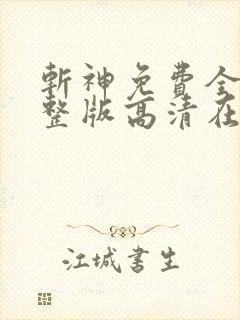 斬神免費全
整版高清在
江城書生